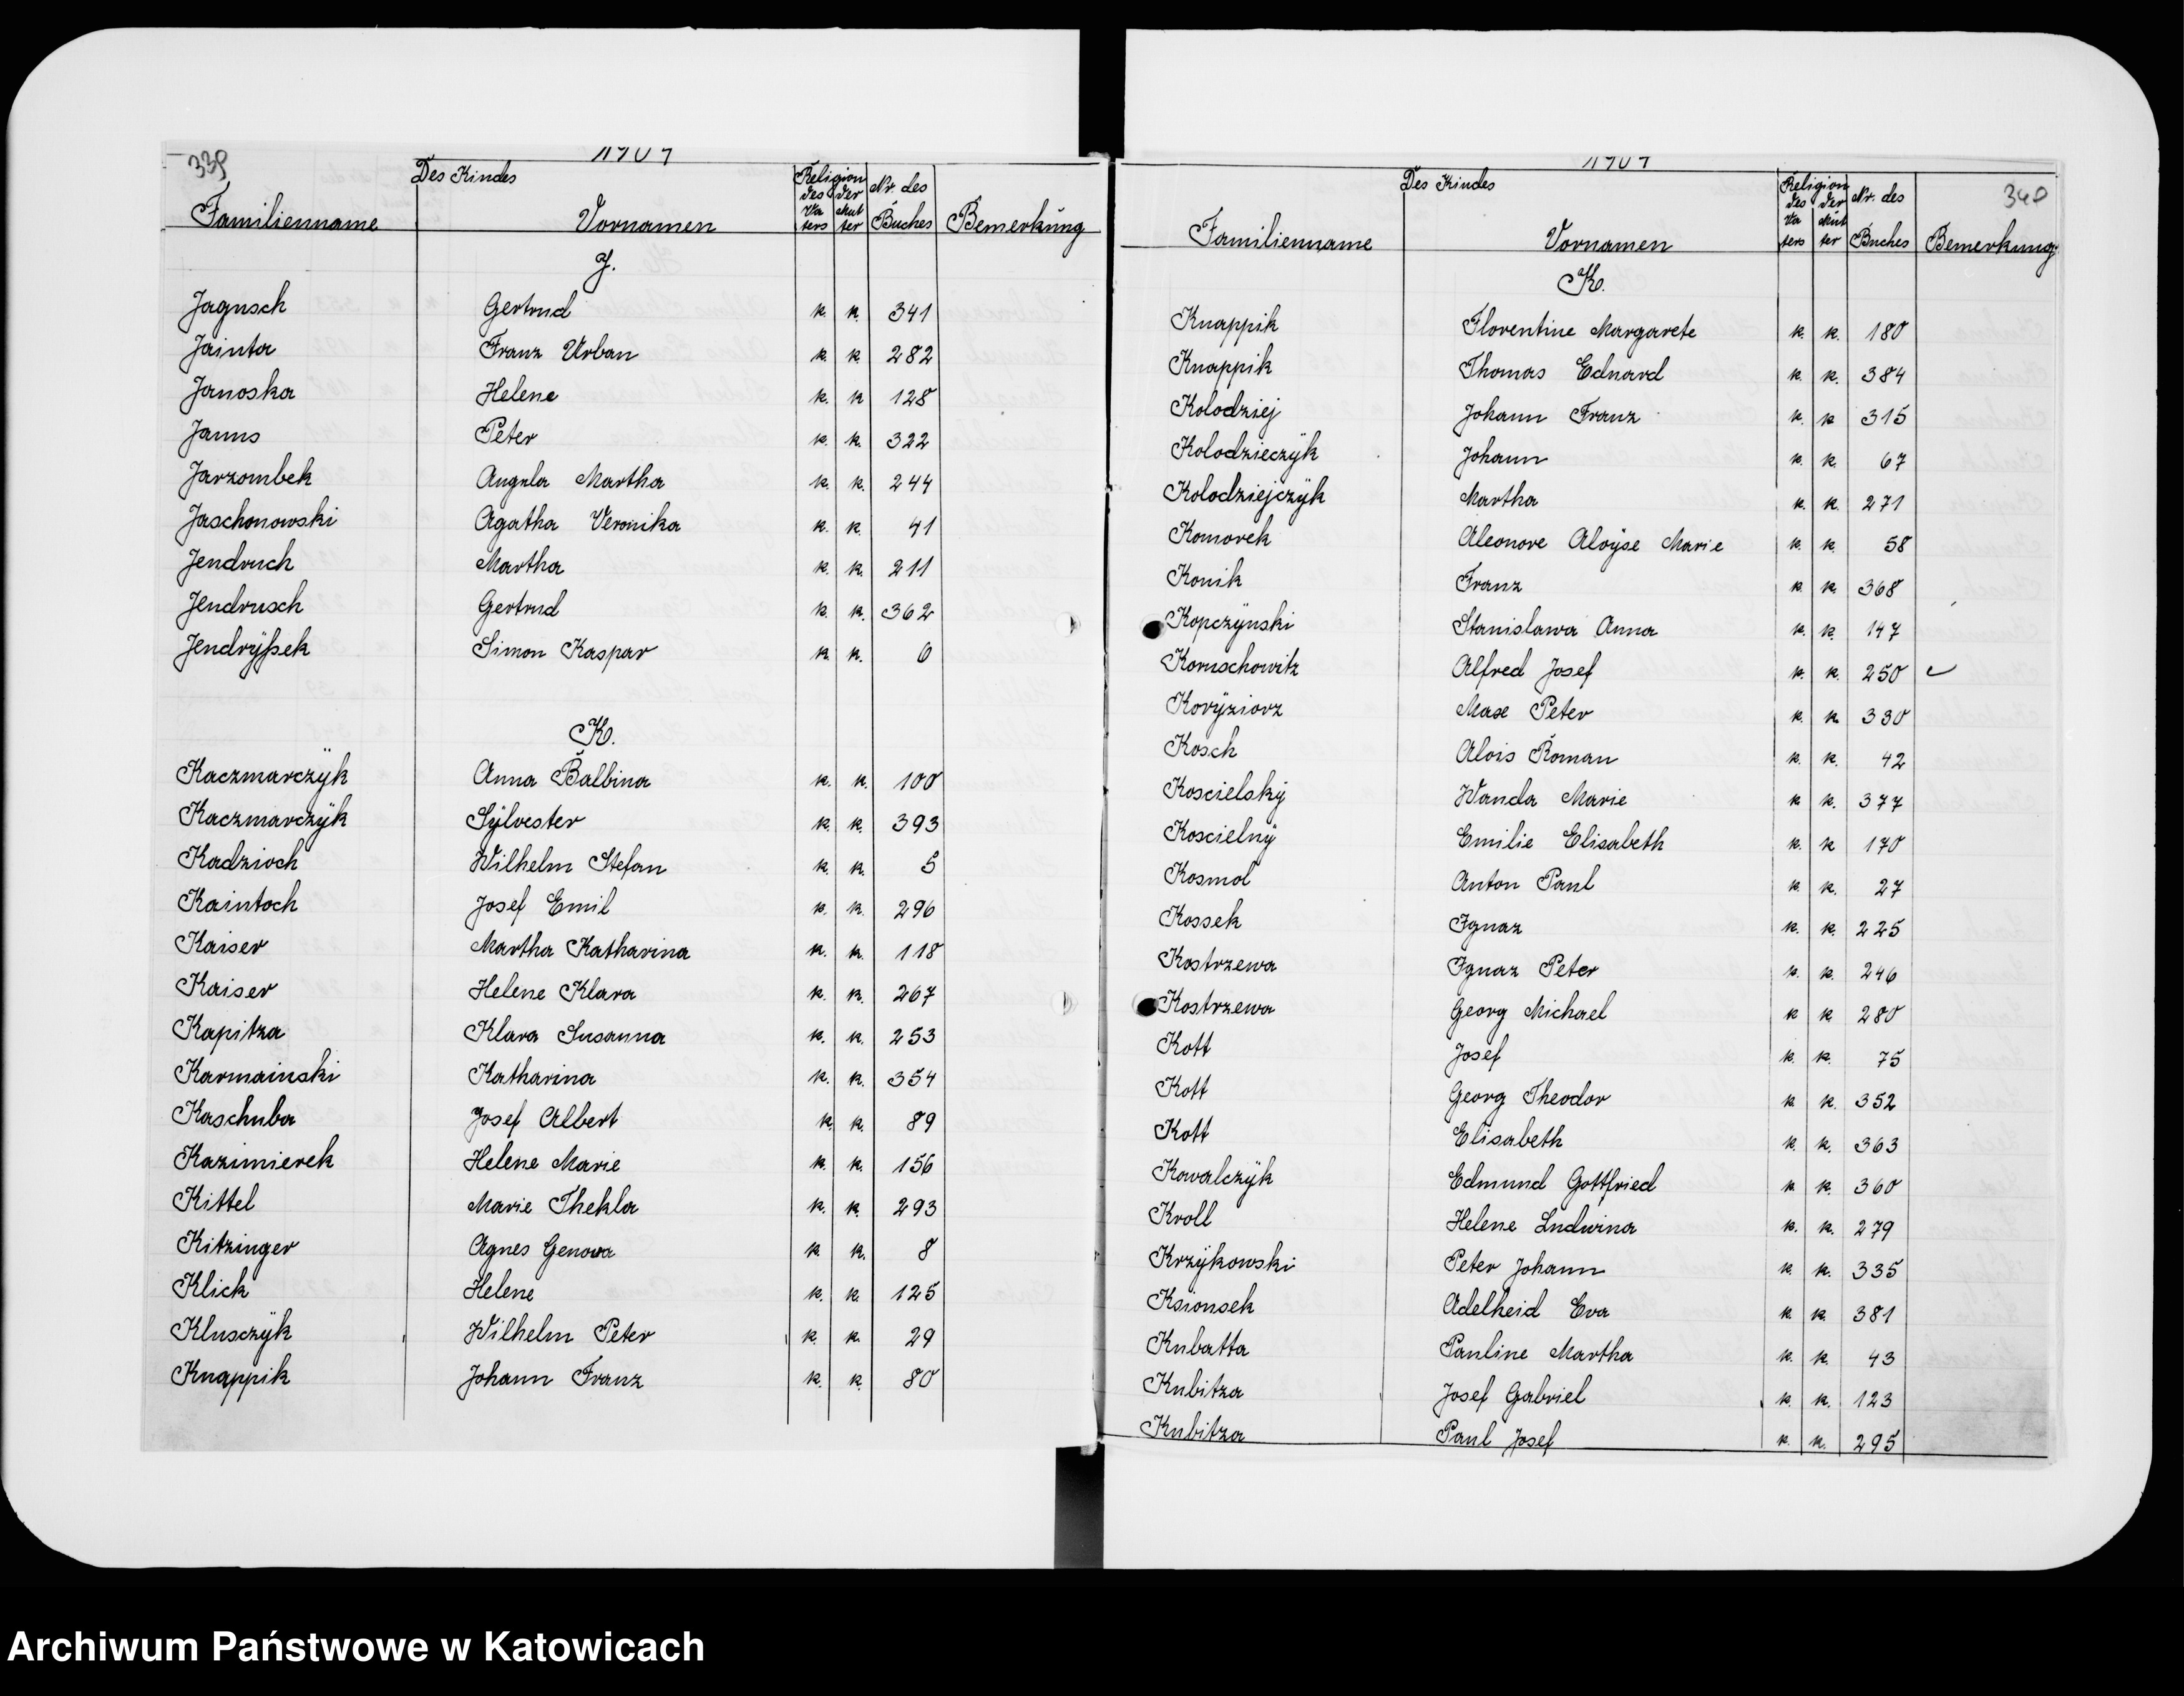 339
Des Kindes
Religion des Vaters der Mutter
Nr. des Buches
Familienname Vornamen Bemerkung
J.
Jagusch Gertrud k. k. 341
Jainta Franz Urban k. k. 282
Janoska Helene k. k 128
Janus Peter k. k. 322
Jarzombek Angela Martha k. k. 244
Jaschonowski Agatha Veronika k. k. 41
Jendruch Martha k. k. 211
Jendrusch Gertrud k. k. 362
Jendrÿßek Simon Kaspar k k. 6
K.
Kaczmarczÿk Anna Balbina k. k. 100
Kaczmarczÿk Sÿlvester k. k. 393
Kadzioch Wilhelm Stefan k. k. 5
Kaintoch Josef Emil k. k. 296
Kaiser Martha Katharina k. k. 118
Kaiser Helene Klara k. k. 267
Kapitza Klara Susanna k. k. 253
Karmainski Katharina k. k. 354
Kaschuba Josef Albert k. k. 89
Kazimierek Helene Marie k. k. 156
Kittel Marie Thekla k. k. 293
Kitzinger Agnes k. k. 8
Klick Helene k. k. 125
Klusczÿk Wilhelm Peter k. k. 29
Knappik Johann Franz k. k. 80
340
Des Kindes
Religion des Vaters der Mutter
Nr. des Buches
Familienname Vornamen Bemerkung
K.
Knappik Florentine Margarete k. k. 180
Knappik Thomas Eduard k. k. 384
Kolodziej Johann Franz k. k 315
Kolodzieczÿk Johann k. k. 67
Kolodziejczÿk Martha k. k. 271
Komorek Aleonore Aloÿse Marie k. k. 58
Konik Franz k. k. 368
Kopczÿnski Stanislawa Anna k. k. 147
Koruschowitz Alfred Josef k. k. 250 ✓
Korÿziorz Max Peter k. k 330
Kosch Alois Roman k. k. 42
Koscielskÿ Wanda Marie k k. 377
Koscielnÿ Emilie Elisabeth k. k 170
Kosmol Anton Paul k k. 27
Kossek Ignaz k. k. 225
Kostrzewa Ignaz Peter k. k. 246
Kostrzewa Georg Michael k k 280
Kott Josef k. k. 75
Kott Georg Theodor k k. 352
Kott Elisabeth k. k. 363
Kowalczÿk Edmund Gottfried k k. 360
Kroll Helene Ludwina k. k. 279
Krzÿkowski Peter Johann k. k. 335
Ksionsek Adelheid Eva k. k. 381
Kubatta Pauline Martha k. k. 43
Kubitza Josef Gabriel k. k. 123
Kubitza Paul Josef k. k. 295
Archiwum Państwowe w Katowicach